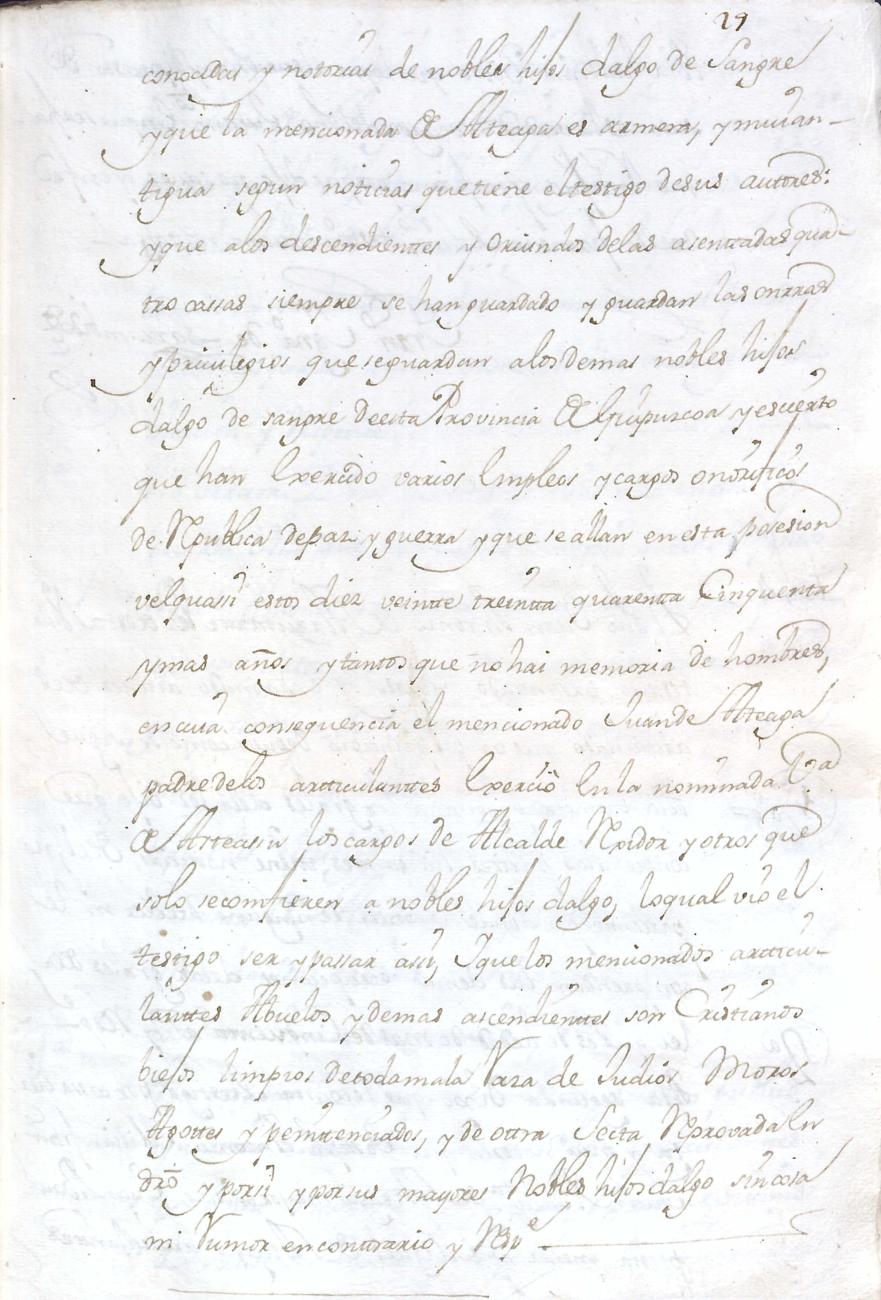 29
conocidas y notorias de nobles hijos dalgo de Sangre
yque la mencionada de Alteaga es armera, y mui an-
tigua segun noticias quetiene eltestigo desus autores:
yque alos descendienttes y Oriundos delas asenttadas quat-
tro cassas siempre se han guardado y guardan las onrras
ypriuilegios que seguardan alosdemas nobles hijos
dalgo de sangre deesta Provincia de Guipuzcoa yescierto
que han Exercido varios Empleos y cargos onorificos
de Republica depaz y guerra yque seallan enesta posesion
velquassi estos diez veintte treintta quarenta Cinquenta
ymas años ytantos que no hai memoria de hombres,
encuia consequencia el mencionado Juande Alteaga
padredelos artticulanttes Exercio En la nominada Va
de Arteassu los cargos de Alcalde Rexidor y otros que
solo seconfieren a nobles hijos dalgo, loqual vio el
testigo ser ypassar assi, Yquelos mencionados artticu-
lanttes Abuelos ydemas ascendienttes son Cristianos
biejos limpios detodamala Raza de Judios Moros
Agottes y penitenciados, y de ottra Secta Reprovada En
dro. y porsi yporsus mayores Nobles hijosdalgo sin cosa
ni Rumor enconttrario y Rde